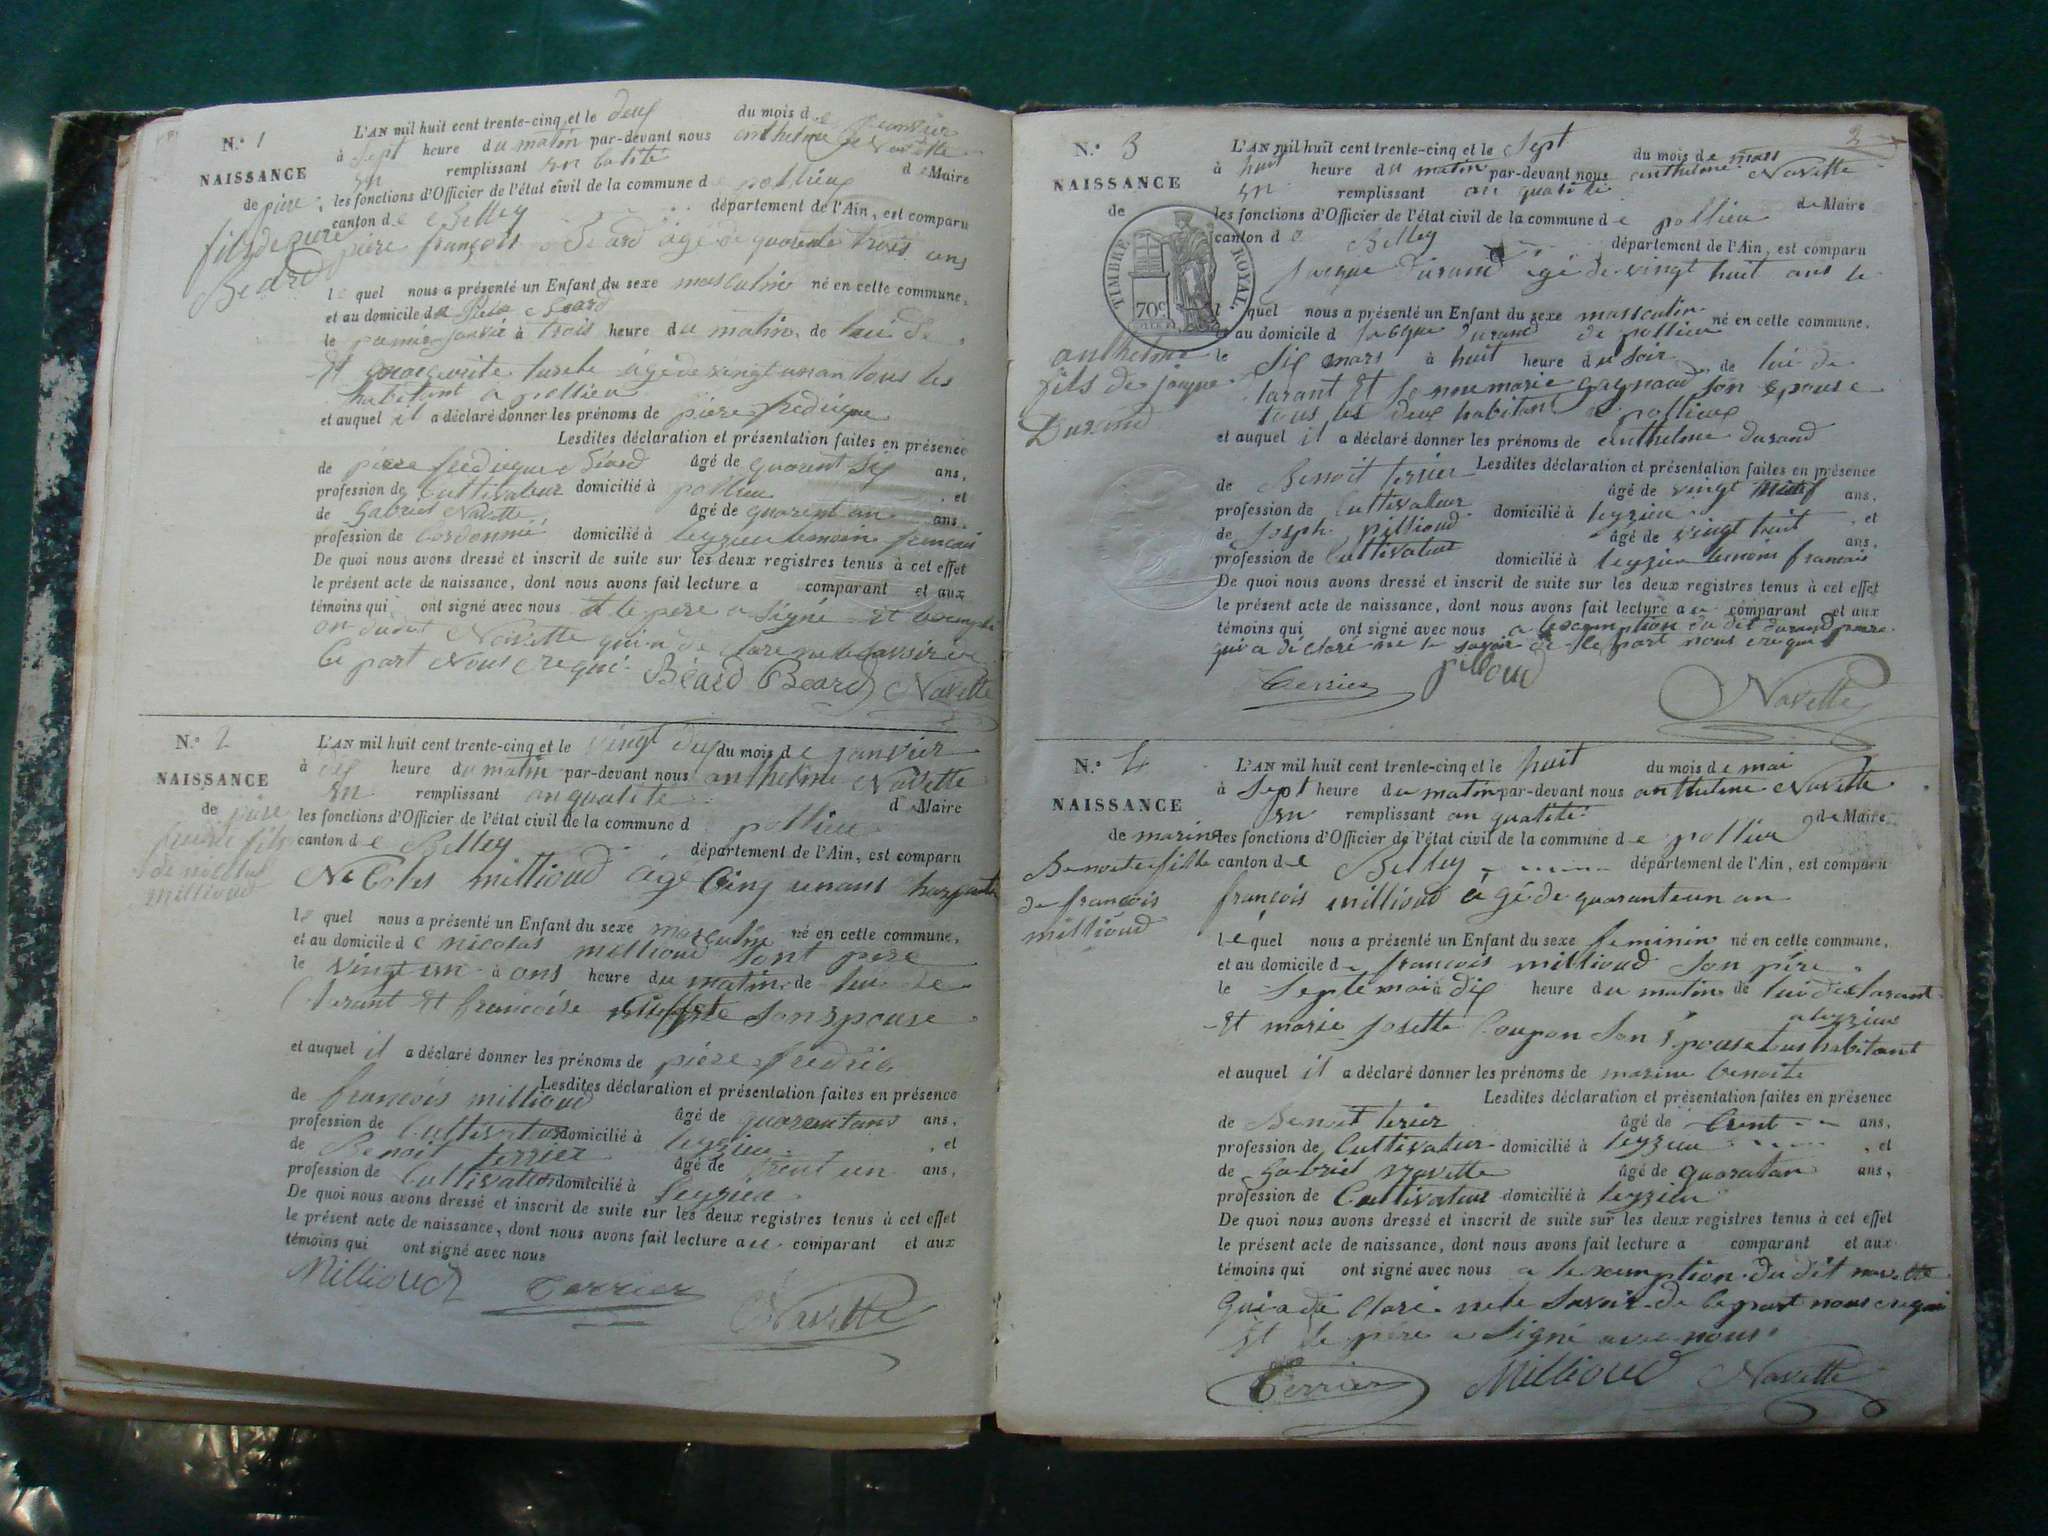 N.º 1
NAISSANCE
de pière
fils de piere
Beard
L'AN mil huit cent trente-cinq et le deux du mois de janvier
à sept heure du matin par-devant nous anthelme Navette
en remplissant en calité d Maire
les fonctions d'Officier de l'état civil de la commune de pollieu
canton de Belley département de l'Ain, est comparu
pière françois Béard âgé de quarente trois ans
le quel nous a présenté un Enfant du sexe masculin né en cette commune,
et au domicile de Béard
le janvié à trois heure du matin de lui de
et tous les
habitant a pollieu
et auquel il a déclaré donner les prénoms de pière fredrique
Lesdites déclaration et présentation faites en présence
de piere fredrique Béard âgé de quarent six ans,
profession de Cultivateur domicilié à pollieu , et
de Gabriel Navette âgé de quarent an ans,
profession de Cordonnié domicilié à leyzieu temoin francais
De quoi nous avons dressé et inscrit de suite sur les deux registres tenus à cet effet
le présent acte de naissance, dont nous avons fait lecture a comparant et aux
témoins qui ont signé avec nous et le père a signé et
on dudit Navette qui a de clare ne le savoir de
Ce part Nous crequi. Béard Beard Navette
N.º 2
NAISSANCE
de pière
fils
de nicolas
millioud
L'AN mil huit cent trente-cinq et le vingt deux du mois de janvier
à heure du matin par-devant nous anthelme Navette
en remplissant an qualité d Maire
les fonctions d'Officier de l'état civil de la commune d pollieu
canton de Belley département de l'Ain, est comparu
Nicolas millioud âgé
le quel nous a présenté un Enfant du sexe masculin né en cette commune,
et au domicile de nicolas millioud sont père
le vingt un à ons heure du matin de lui de
Clarant et francoise son epouse
et auquel il a déclaré donner les prénoms de pière fredric
Lesdites déclaration et présentation faites en présence
de françois millioud âgé de quarentans ans,
profession de Cultivateur domicilié à leyzieu , et
de Benoit terrier âgé de trent un ans,
profession de Cultivateur domicilié à leyzieu
De quoi nous avons dressé et inscrit de suite sur les deux registres tenus à cet effet
le présent acte de naissance, dont nous avons fait lecture au comparant et aux
témoins qui ont signé avec nous
Millioud Terrier Navette
2
N.º 3
NAISSANCE
de
TIMBRE ROYAL
70c
anthelme
fils de jaque
Durand
L'AN mil huit cent trente-cinq et le Sept du mois de mars
à huit heure du matin par-devant nous anthelme Navette
en remplissant an qualité de Maire
les fonctions d'Officier de l'état civil de la commune de pollieu
canton d Belley département de l'Ain, est comparu
jacque durand âgé de vingt huit ans le
quel nous a présenté un Enfant du sexe masculin né en cette commune,
et au domicile d jacque durand de pollieu
le six mars à huit heure du soir de lui de
larant et marie son epouse
tous les deux habitant a pollieux
et auquel il a déclaré donner les prénoms de anthelme durand
Lesdites déclaration et présentation faites en présence
de Benoit terrier âgé de vingt ans,
profession de Cultivateur domicilié à leyzieu , et
de Joseph pillioud âgé de vingt huit ans,
profession de Cultivateur domicilié à leyzieu temoins francais
De quoi nous avons dressé et inscrit de suite sur les deux registres tenus à cet effet
le présent acte de naissance, dont nous avons fait lecture au comparant et aux
témoins qui ont signé avec nous a lexcemption du dit durand
qui a déclaré ne le savoir de Ce part nous crequi
Terrier pillioud Navette
N.º 4
NAISSANCE
de marine
Benoite fille
de françois
millioud
L'AN mil huit cent trente-cinq et le huit du mois de mai
à sept heure du matin par-devant nous anthelme Navette
en remplissant an qualité de Maire
les fonctions d'Officier de l'état civil de la commune de pollieu
canton de Belley département de l'Ain, est comparu
françois millioud âgé de quaranteun an
le quel nous a présenté un Enfant du sexe feminin né en cette commune,
et au domicile de françois millioud son père
le septe mai à dix heure du matin de lui declarant
a leyzieu
et marie josette Coupon son epouse tous habitant
et auquel il a déclaré donner les prénoms de marine benoite
Lesdites déclaration et présentation faites en présence
de Benoit terier âgé de trent ans,
profession de Cultivateur domicilié à leyzieu , et
de gabriel navette âgé de quaratan ans,
profession de Cultivateur domicilié à leyzieu
De quoi nous avons dressé et inscrit de suite sur les deux registres tenus à cet effet
le présent acte de naissance, dont nous avons fait lecture a comparant et aux
témoins qui ont signé avec nous a lexemption du dit navette
qui a dé Claré ne le savoir de Ce part nous crequi
et le père a signé avec nous
Terrier Millioud Navette